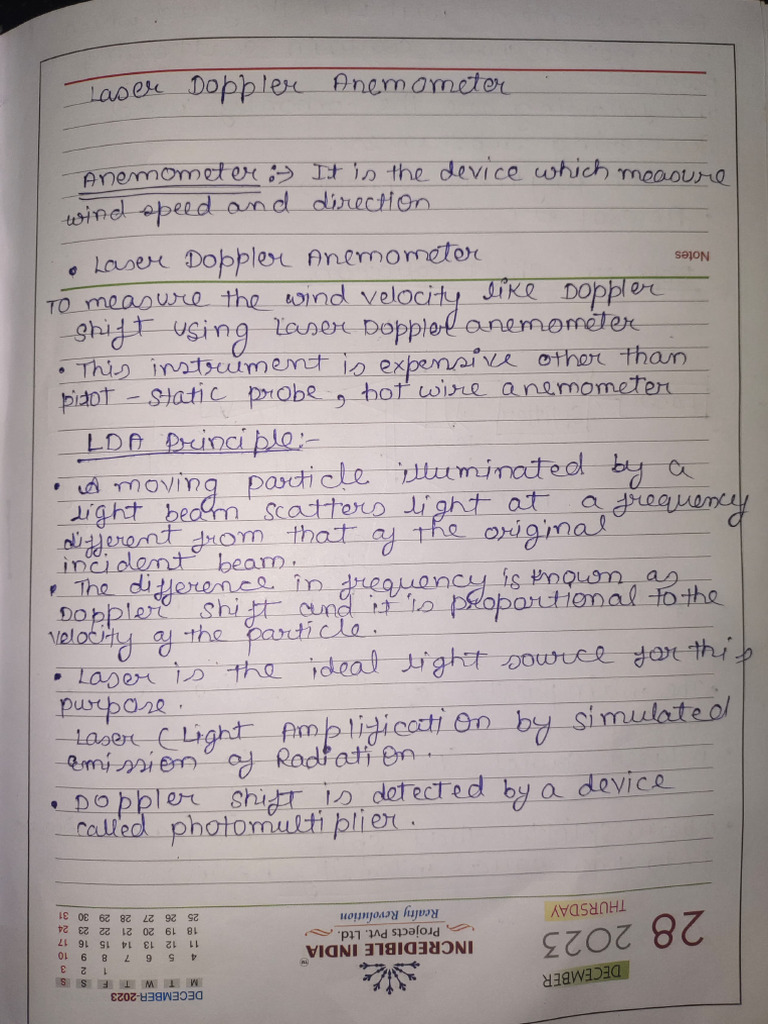 Laser Doppler Anemometer
Anemometer :-> It is the device which measure
wind speed and direction
• Laser Doppler Anemometer
Notes
To measure the wind velocity like Doppler
shift using Laser Doppler anemometer
• This instrument is expensive other than
pitot - static probe, hot wire anemometer
LDA Principle:-
• A moving particle illuminated by a
light beam scatters light at a frequency
different from that of the original
incident beam.
• The difference in frequency is known as
Doppler shift and it is proportional to the
velocity of the particle.
• Laser is the ideal light source for this
purpose.
Laser (Light Amplification by simulated
emission of Radiation.
• Doppler shift is detected by a device
called photomultiplier.
DECEMBER
28 2023
THURSDAY
INCREDIBLE INDIA
Projects Pvt. Ltd.
Realty Revolution
DECEMBER-2023
M T W T F S S
1 2 3
4 5 6 7 8 9 10
11 12 13 14 15 16 17
18 19 20 21 22 23 24
25 26 27 28 29 30 31